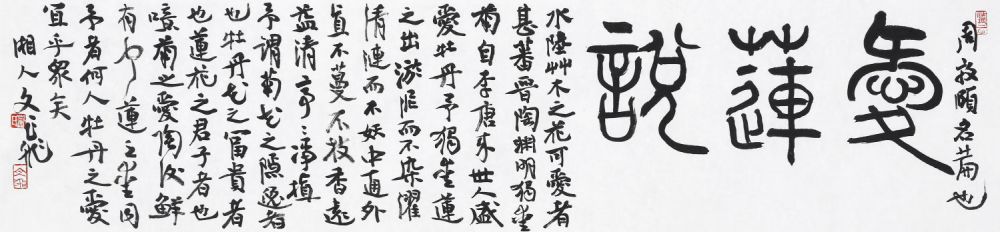 周敦頤名篇也
愛蓮說
水陸艸木之花可愛者
甚蕃晉陶淵明獨愛
菊自李唐來世人盛
愛牡丹予獨愛蓮
之出淤泥而不染濯
清漣而不妖中通外
直不蔓不枝香遠
益清亭〻淨植
予謂菊花之隱逸者
也牡丹花之富貴者
也蓮花之君子者也
噫菊之愛陶後鮮
有聞蓮之愛同
予者何人牡丹之愛
宜乎眾矣
湘人文